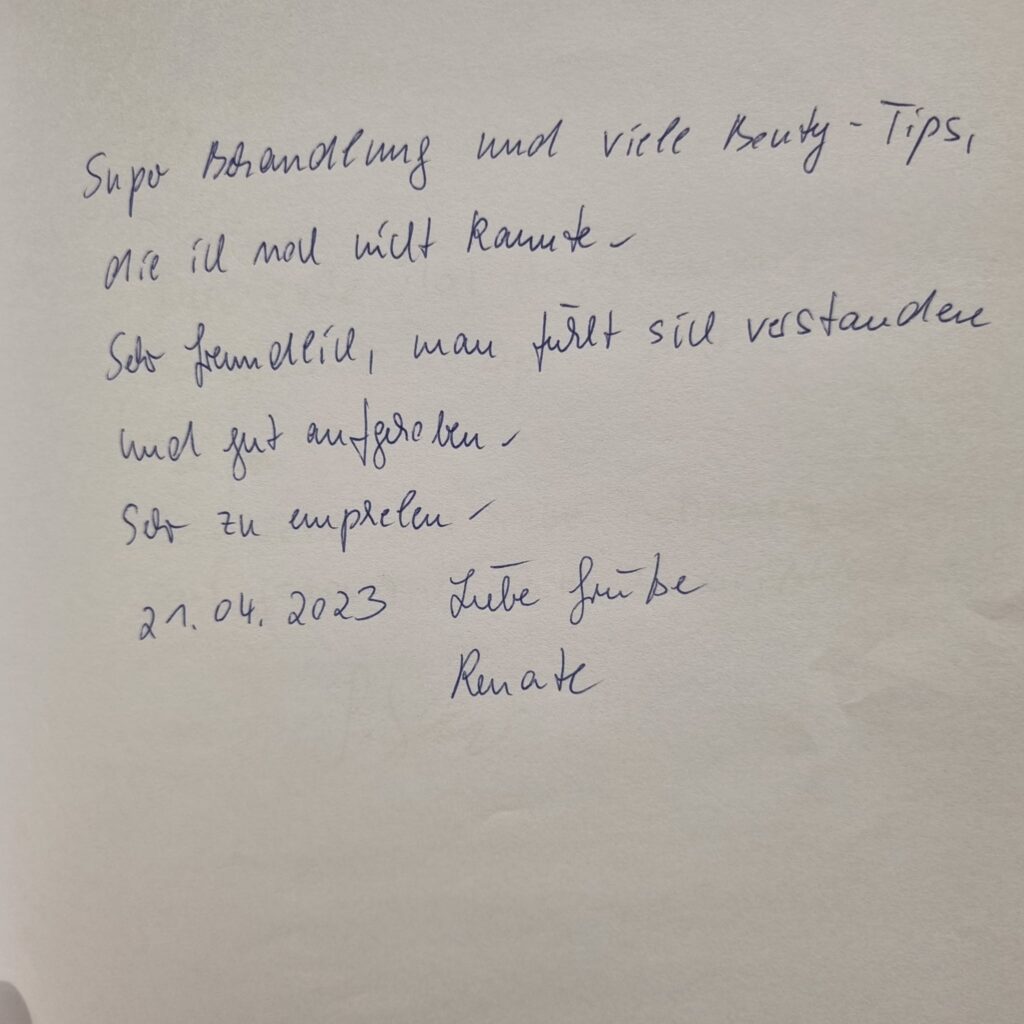 Super Behandlung und viele Beuty-Tips,
die ich noch nicht kannte.
Sehr freundlich, man fühlt sich verstanden
und gut aufgehoben.
Sehr zu empfehlen.
21.04.2023 Liebe Grüße
Renate